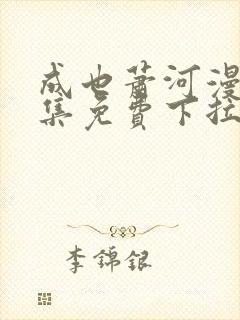 成也萧河漫
集免費下拉
李錦銀